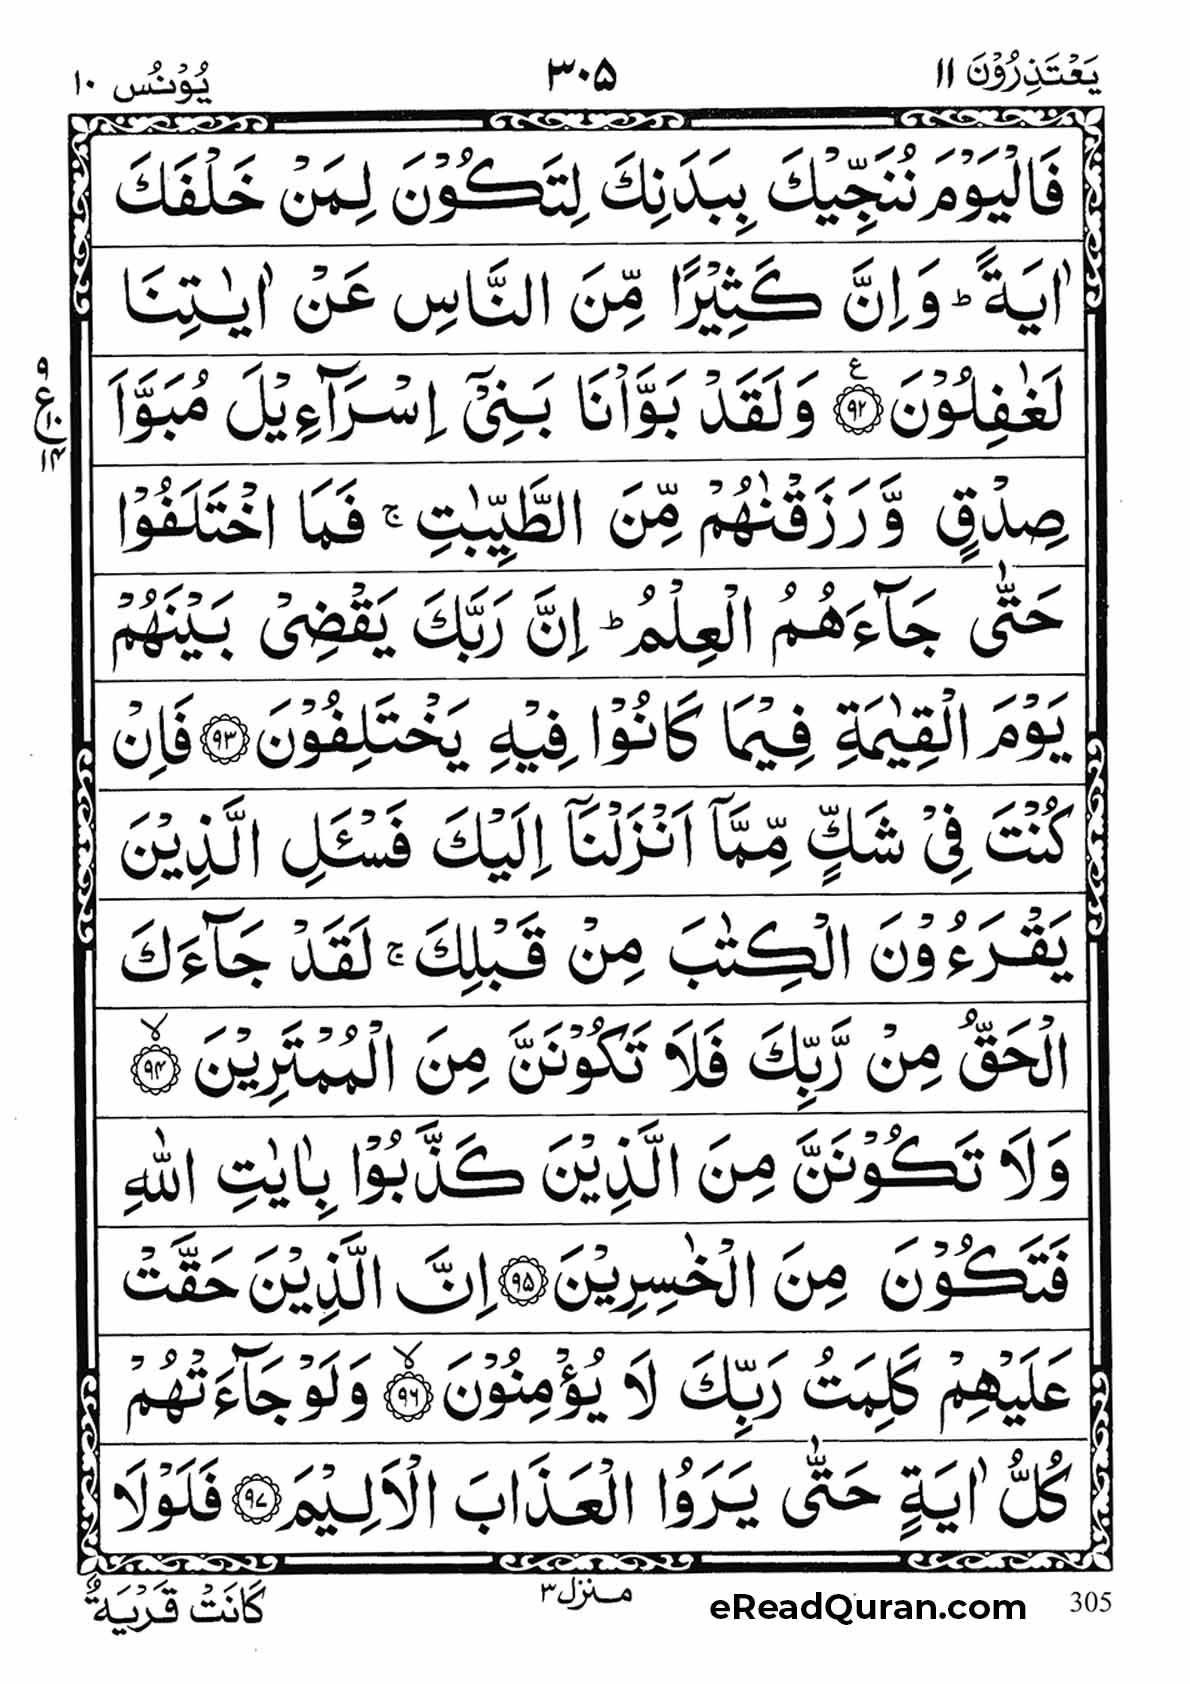 يَعْتَذِرُوْنَ ١١
٣٠٥
يُوْنُس ١٠
فَالْيَوْمَ نُنَجِّيْكَ بِبَدَنِكَ لِتَكُوْنَ لِمَنْ خَلْفَكَ
اٰيَةً ؕ وَاِنَّ كَثِيْرًا مِّنَ النَّاسِ عَنْ اٰيٰتِنَا
لَغٰفِلُوْنَ ۹۲ ع وَلَقَدْ بَوَّاْنَا بَنِيْۤ اِسْرَآءِيْلَ مُبَوَّاَ
صِدْقٍ وَّرَزَقْنٰهُمْ مِّنَ الطَّيِّبٰتِ ۚ فَمَا اخْتَلَفُوْا
حَتّٰى جَآءَهُمُ الْعِلْمُ ؕ اِنَّ رَبَّكَ يَقْضِيْ بَيْنَهُمْ
يَوْمَ الْقِيٰمَةِ فِيْمَا كَانُوْا فِيْهِ يَخْتَلِفُوْنَ ۹۳ فَاِنْ
كُنْتَ فِيْ شَكٍّ مِّمَّاۤ اَنْزَلْنَاۤ اِلَيْكَ فَسْـَٔلِ الَّذِيْنَ
يَقْرَءُوْنَ الْكِتٰبَ مِنْ قَبْلِكَ ۚ لَقَدْ جَآءَكَ
الْحَقُّ مِنْ رَّبِّكَ فَلَا تَكُوْنَنَّ مِنَ الْمُمْتَرِيْنَ ۹۴ ۙ
وَلَا تَكُوْنَنَّ مِنَ الَّذِيْنَ كَذَّبُوْا بِاٰيٰتِ اللّٰهِ
فَتَكُوْنَ مِنَ الْخٰسِرِيْنَ ۹۵ اِنَّ الَّذِيْنَ حَقَّتْ
عَلَيْهِمْ كَلِمَتُ رَبِّكَ لَا يُؤْمِنُوْنَ ۹۶ ۙ وَلَوْ جَآءَتْهُمْ
كُلُّ اٰيَةٍ حَتّٰى يَرَوُا الْعَذَابَ الْاَلِيْمَ ۹۷ فَلَوْلَا
٩ ع ١٠ ١٤
305
eReadQuran.com
منزل ٣
كَانَتْ قَرْيَةٌ